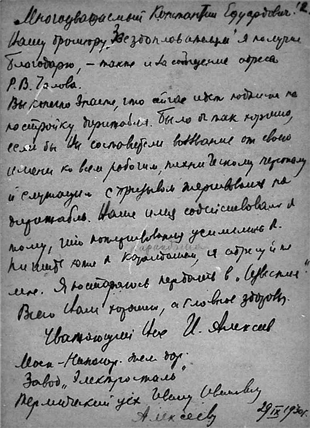 Многоуважаемый Константин Едуардович!
Вашу брошюру „Звездоплавателям" я получил
благодарю, – также и за сообщение адреса
Вы конечно знаете, что сейчас идет подписка на
постройку дирижабля. Было б так хорошо,
если бы Вы составили воззвание от своего
имени ко всем рабочим, техническому персоналу
и служащим с призывом жертвовать на
дирижабль. Ваше имя содействовало б
тому, что пожертвования усилились б.
Я постараюсь передать в „Известия"
Всего Вам хорошего, а главное здоровья.
Уважающий Вас И. Алексеев
Моск-
Завод „Электросталь"
Термический цех Ивану Ивановичу
Алексееву 29/IX 1930г.